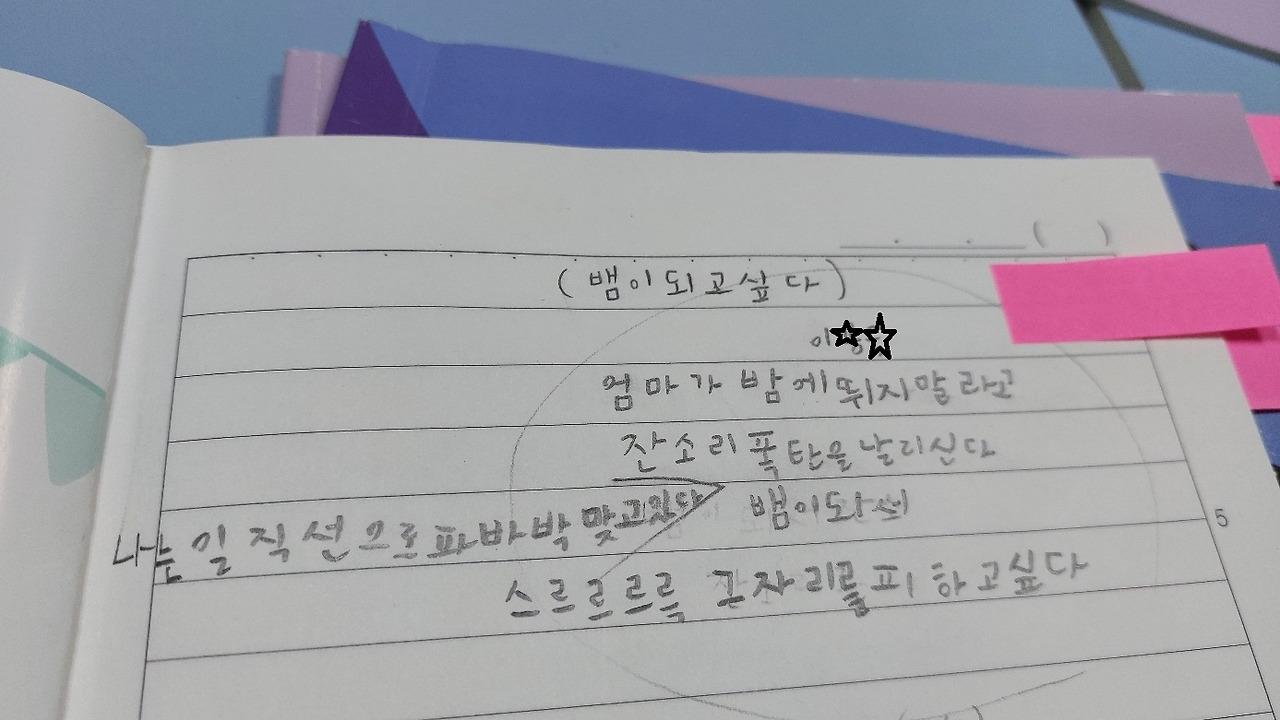 ( )
(뱀이되고싶다)
이
엄마가 밤에뛰지말라고
잔소리폭탄을날리신다
나는일직선으로파바박맞고있다
뱀이돠서
스르르르륵 그자리를피하고싶다
5